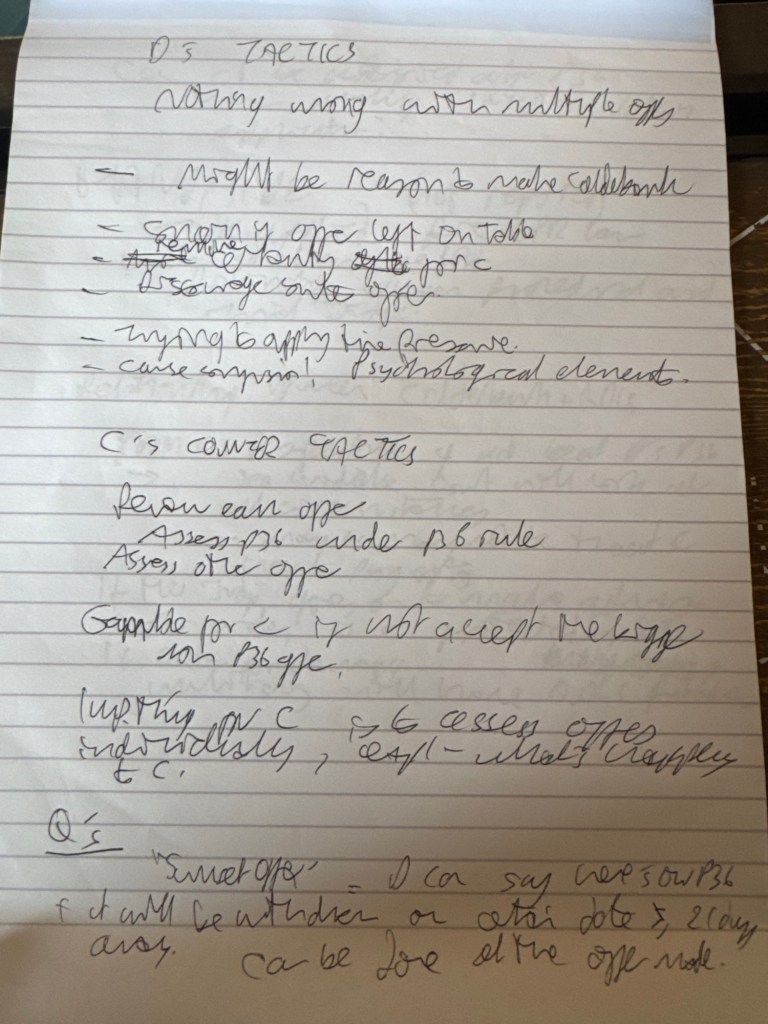 D's TACTICS
Nothing wrong with multiple offs
- Might be reason to make Calderbank
- offe left on table
- Remove certainty for C
- Discourage offer.
- Trying to apply time pressure.
- cause confusion! Psychological elements.
C's COUNTER TACTICS
Review each offe
Assess P36 under P36 rule
Assess othe offe
Gamble for C if not accept
non P36 offe.
Imp thing for C is to assess offes
individually, expl - what's happening
to C.
Q's
"Sunset Offer" = D can say here's our P36
+ it will be withdrawn on certain date 21 days
away. Can be done at the offe made.